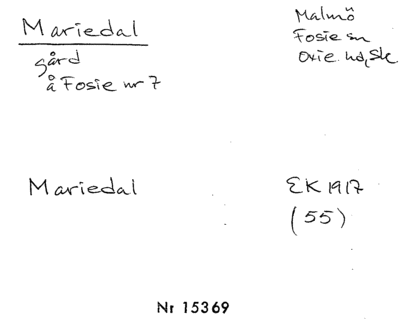 Mariedal
gård
å Fosie nr 7
Malmö
Fosie sn
Oxie hd, Sk.
Mariedal
EK 1917
(55)
Nr 15369